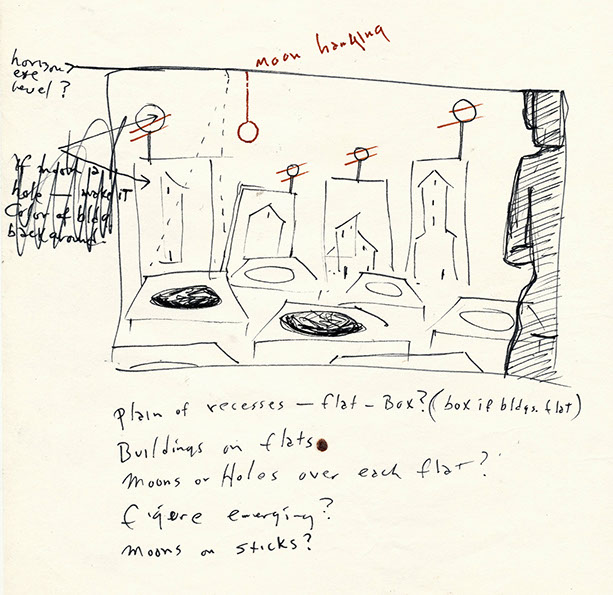 moon hanging
horizon
eye
level?
If moon a
hole — make it
color of bldg
background?
Plain of recesses — flat — Box? (box if bldgs. flat)
Buildings on flats
Moons or Holes over each flat?
figure emerging?
moons on sticks?